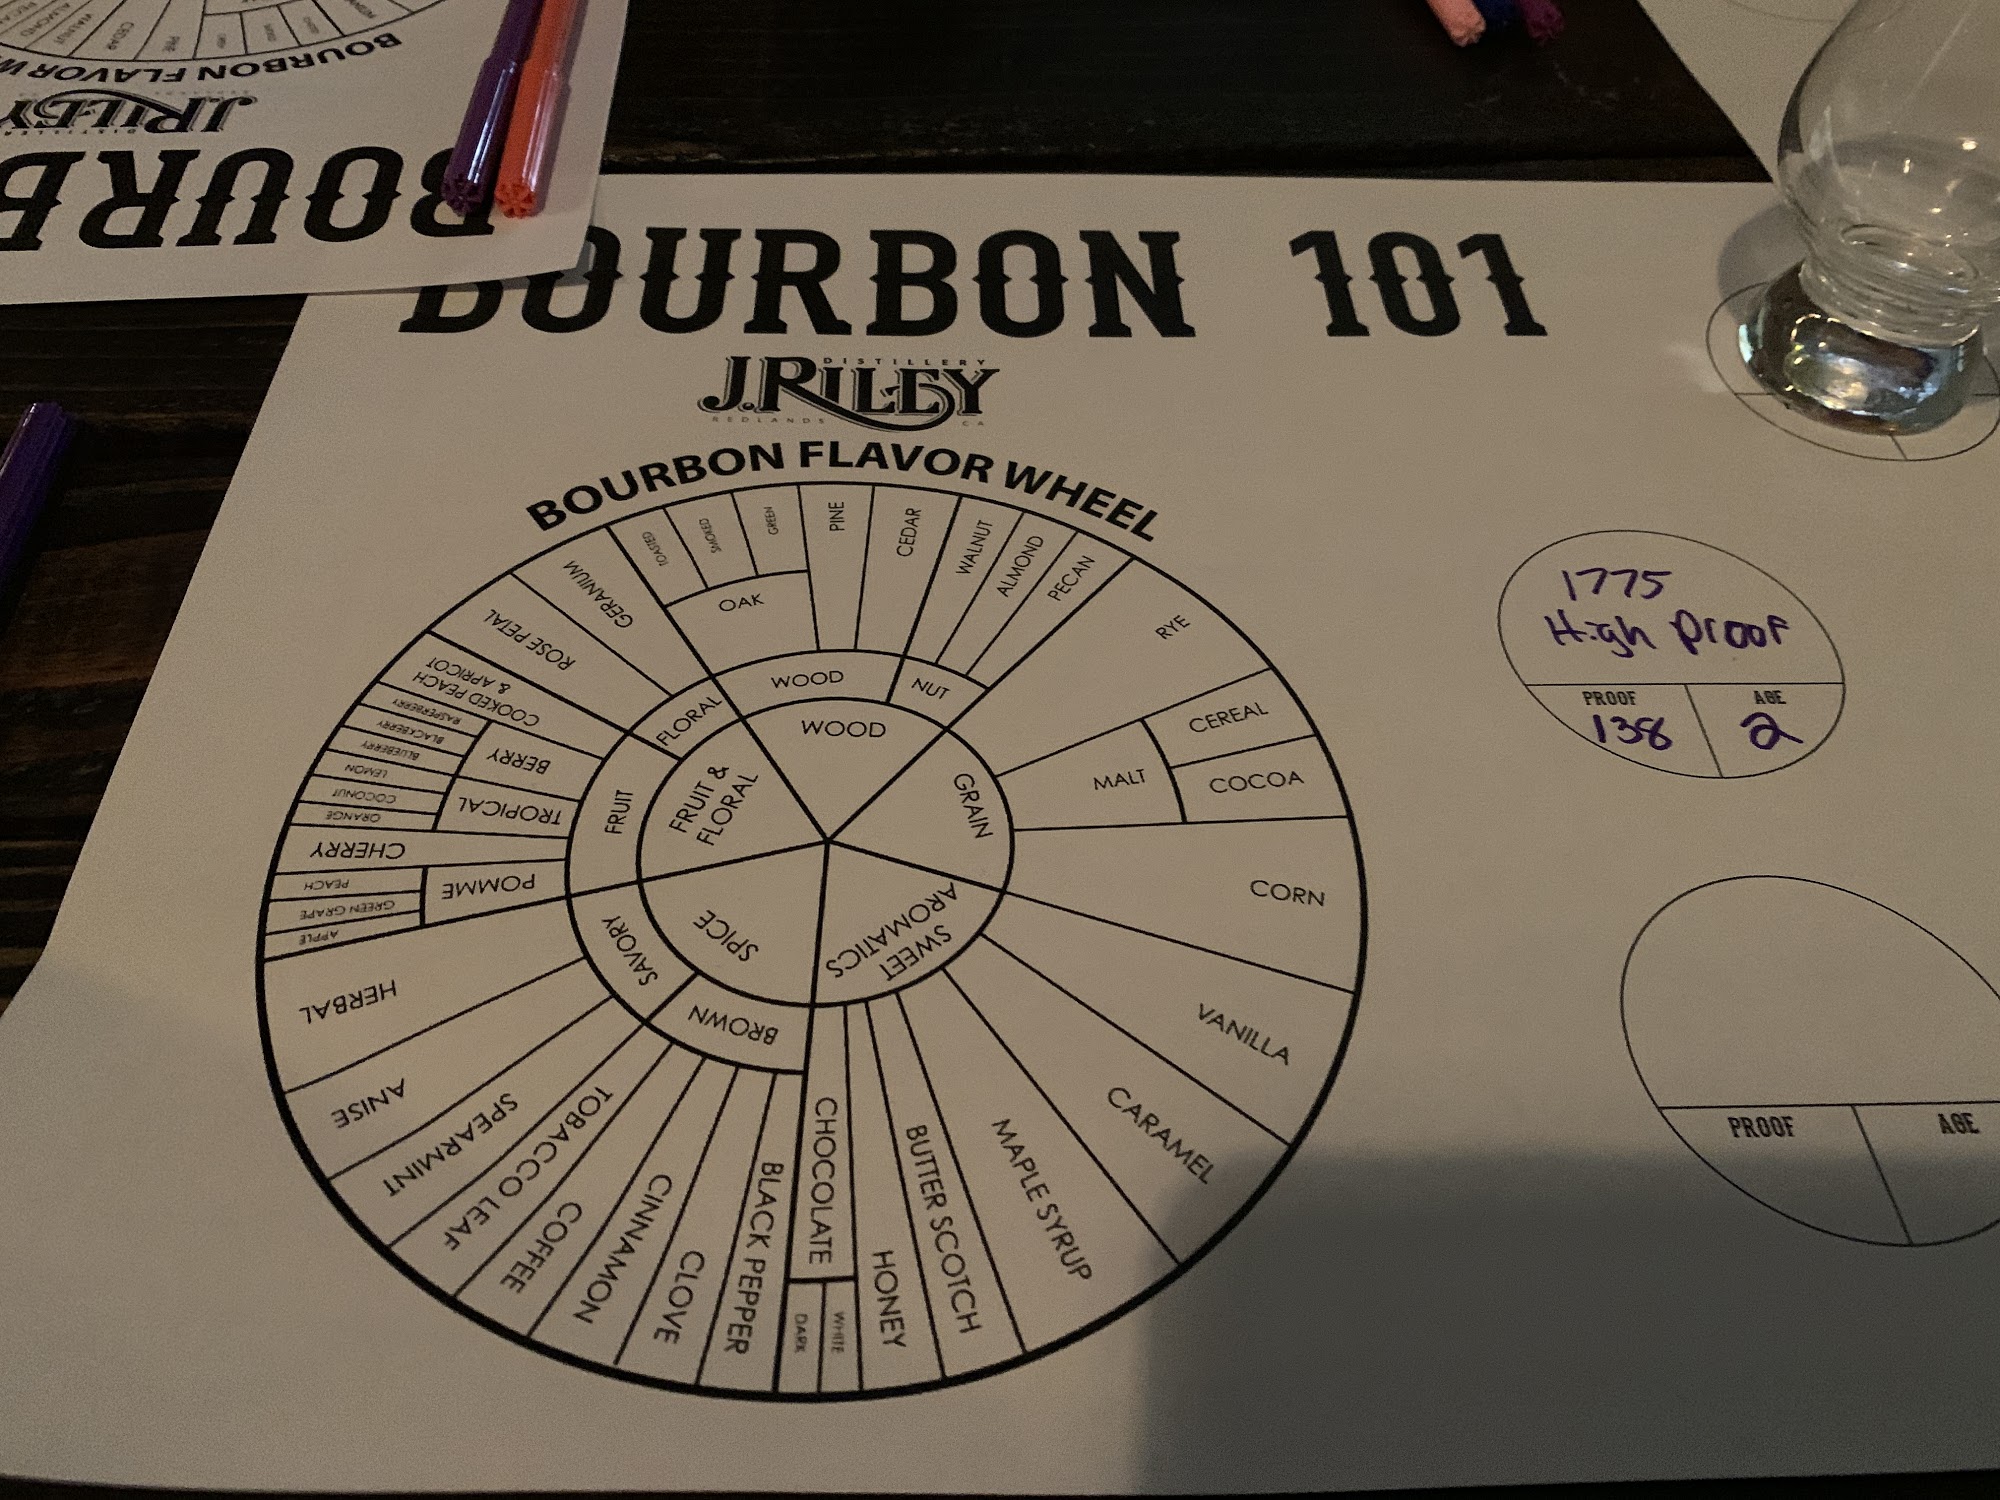 BOURBON 101
DISTILLERY
J.RILEY
REDLANDS CA
BOURBON FLAVOR WHEEL
WOOD
WOOD
OAK
TOASTED
SMOKED
GREEN
PINE
CEDAR
NUT
WALNUT
ALMOND
PECAN
GRAIN
RYE
MALT
CEREAL
COCOA
CORN
SWEET
AROMATICS
VANILLA
CARAMEL
MAPLE SYRUP
BUTTER SCOTCH
HONEY
CHOCOLATE
WHITE
DARK
SPICE
BROWN
BLACK PEPPER
CLOVE
CINNAMON
COFFEE
TOBACCO LEAF
SAVORY
SPEARMINT
ANISE
HERBAL
FRUIT &
FLORAL
FRUIT
POMME
APPLE
GREEN GRAPE
PEACH
CHERRY
TROPICAL
ORANGE
COCONUT
LEMON
BERRY
BLUEBERRY
BLACKBERRY
RASPBERRY
COOKED PEACH
& APRICOT
FLORAL
ROSE PETAL
GERANIUM
1775
High Proof
PROOF
138
AGE
2
PROOF
AGE
BOURB
J.RILEY
BOURBON FLAVOR W
PINE
CEDAR
WALNUT
ALMOND